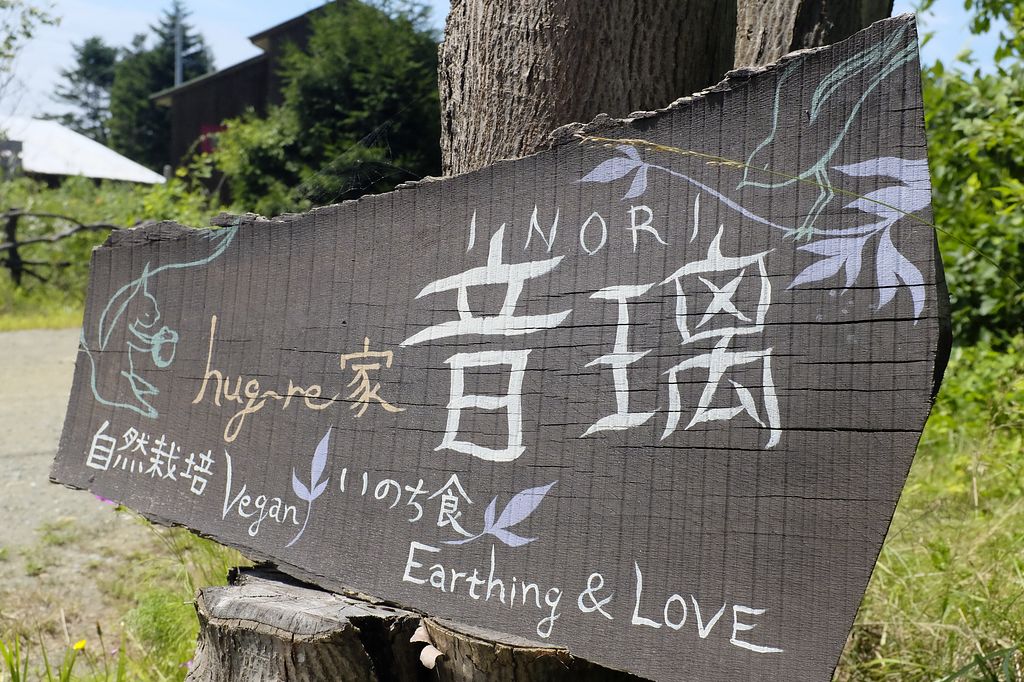 INORI
hug-re家 音璃
自然栽培 Vegan いのち食
Earthing & LOVE